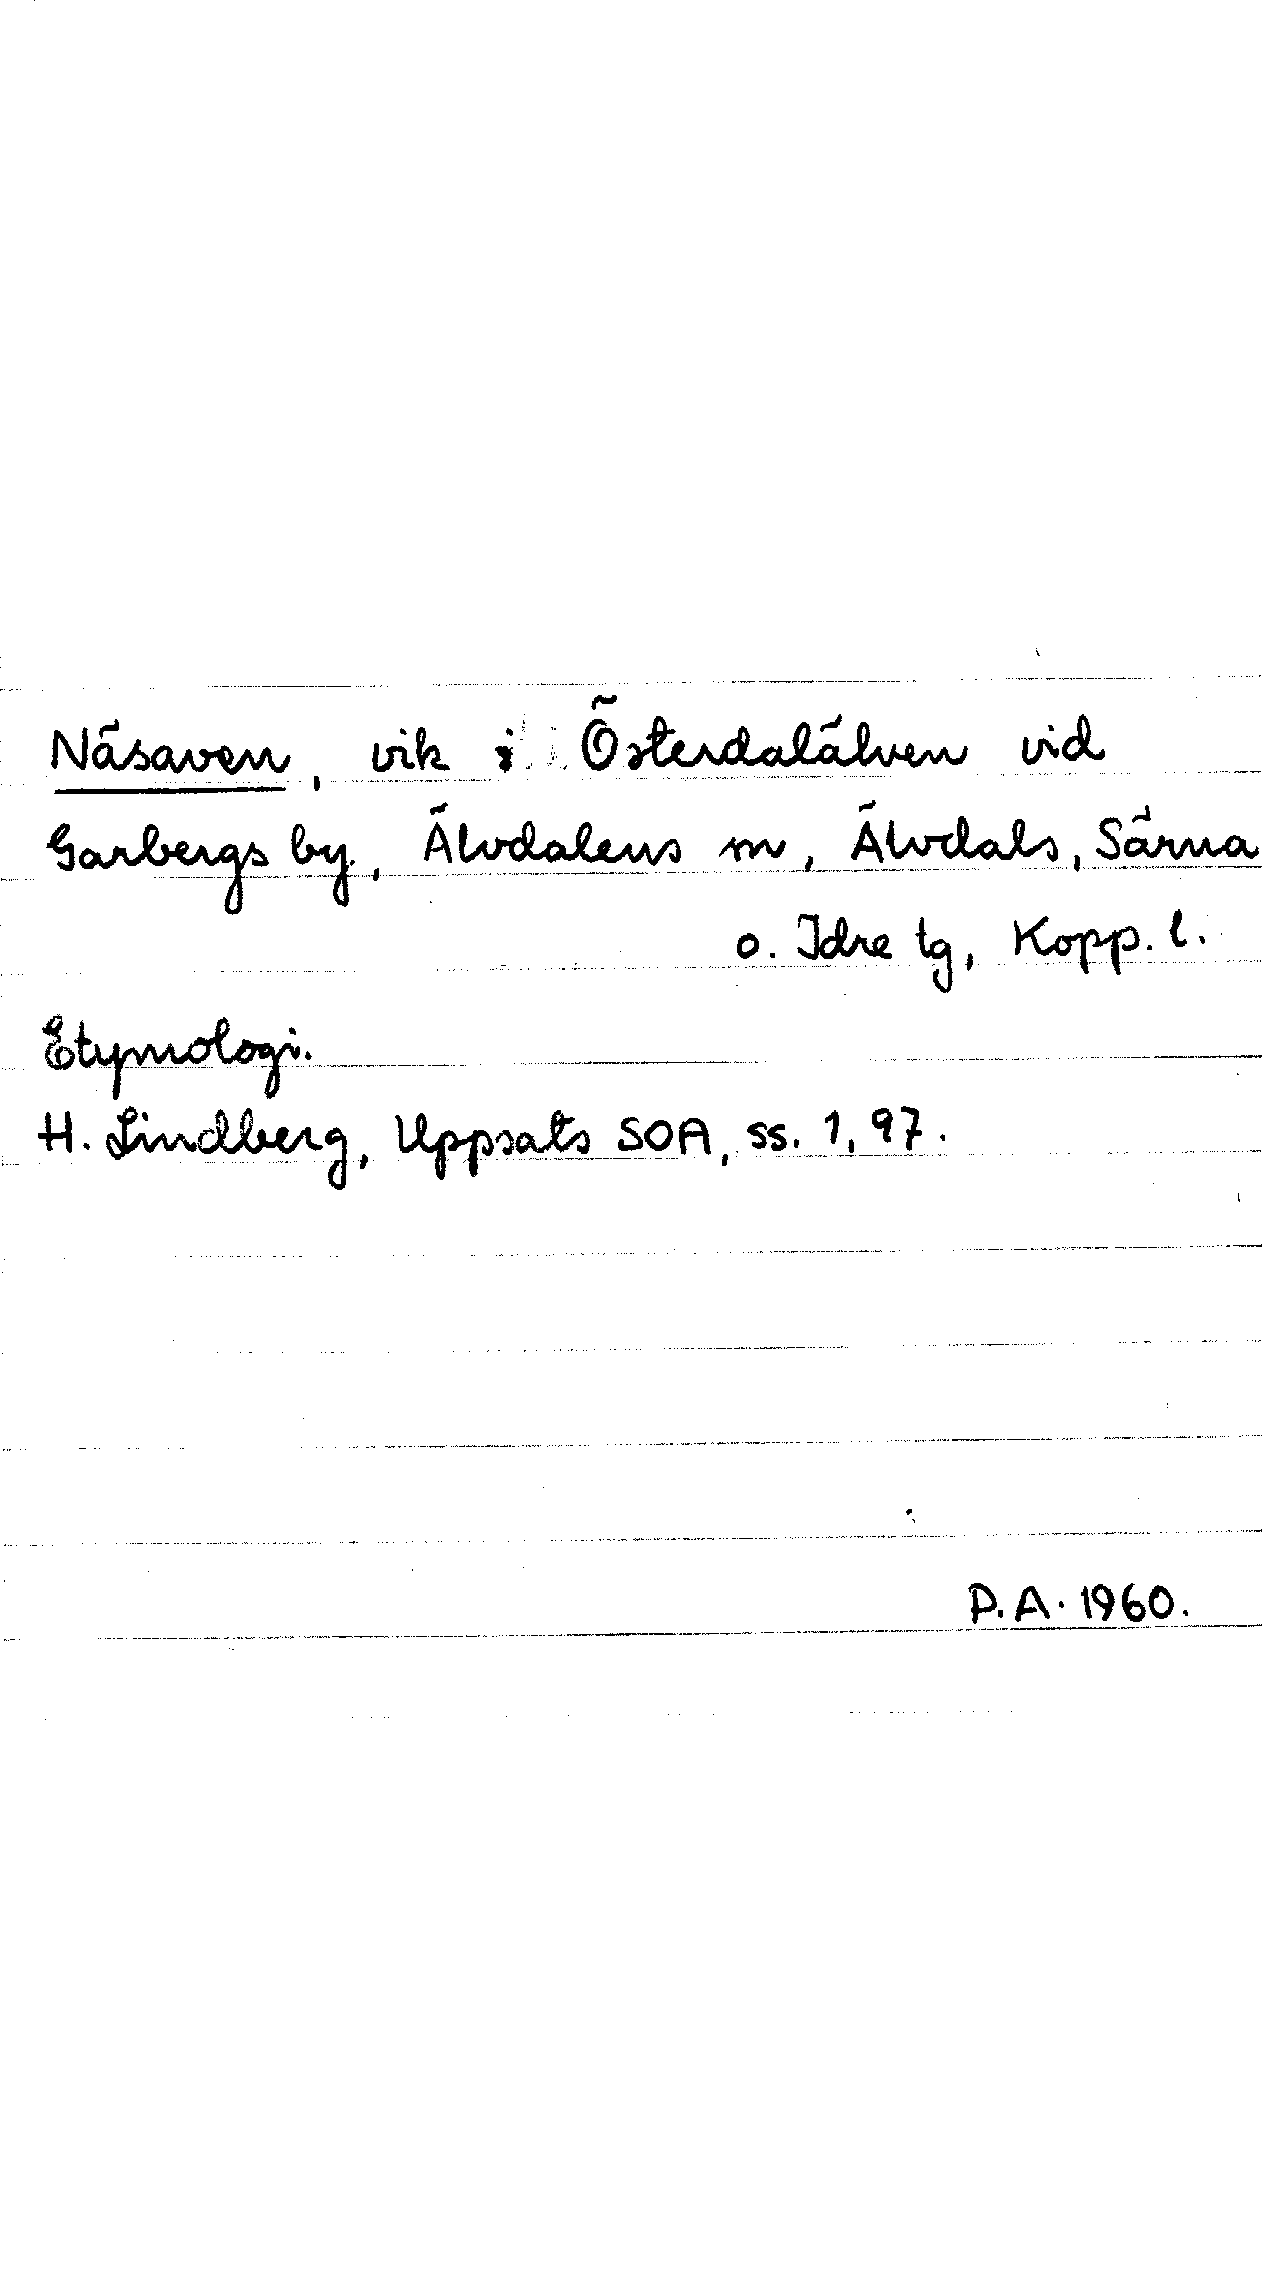 Näsaven, vik i Österdalälven vid
Garbergs by, Älvdalens m, Älvdals, Särna
o. Idre tg, Kopp. l.
Etymologi.
H. Lindberg, Uppsats SOA, ss. 1, 97.
P.A. 1960.